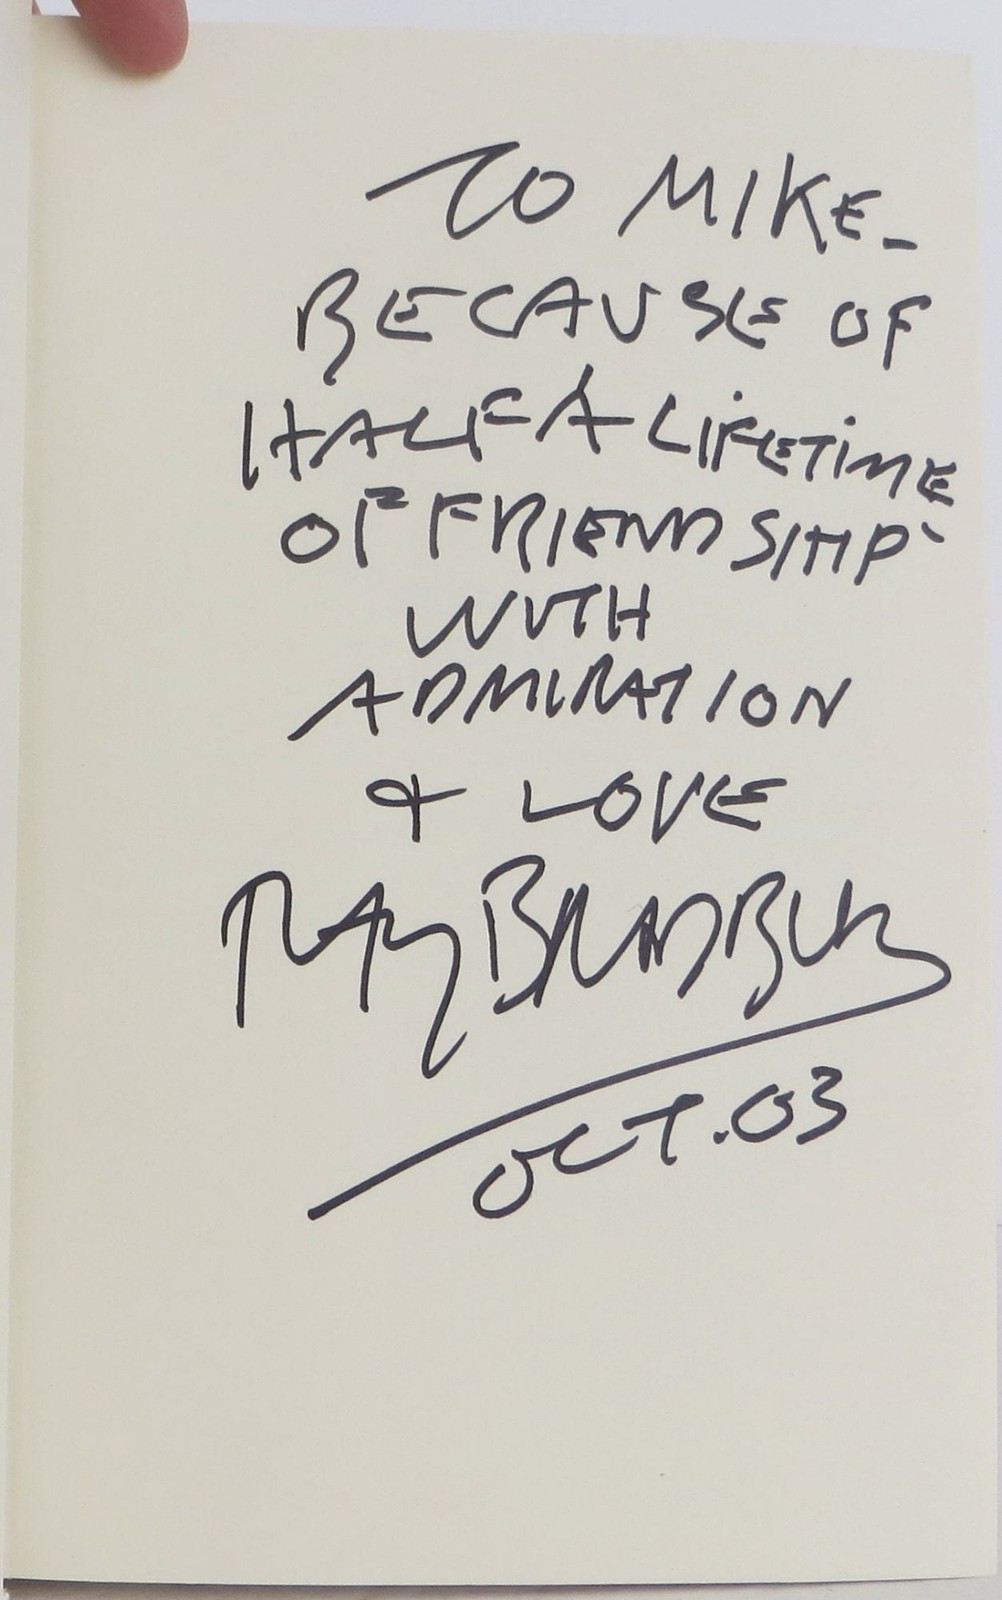 TO MIKE-
BECAUSE OF
HALF A LIFETIME
OF FRIENDSHIP
WITH
ADMIRATION
& LOVE
RAY BRADBURY
OCT. 03